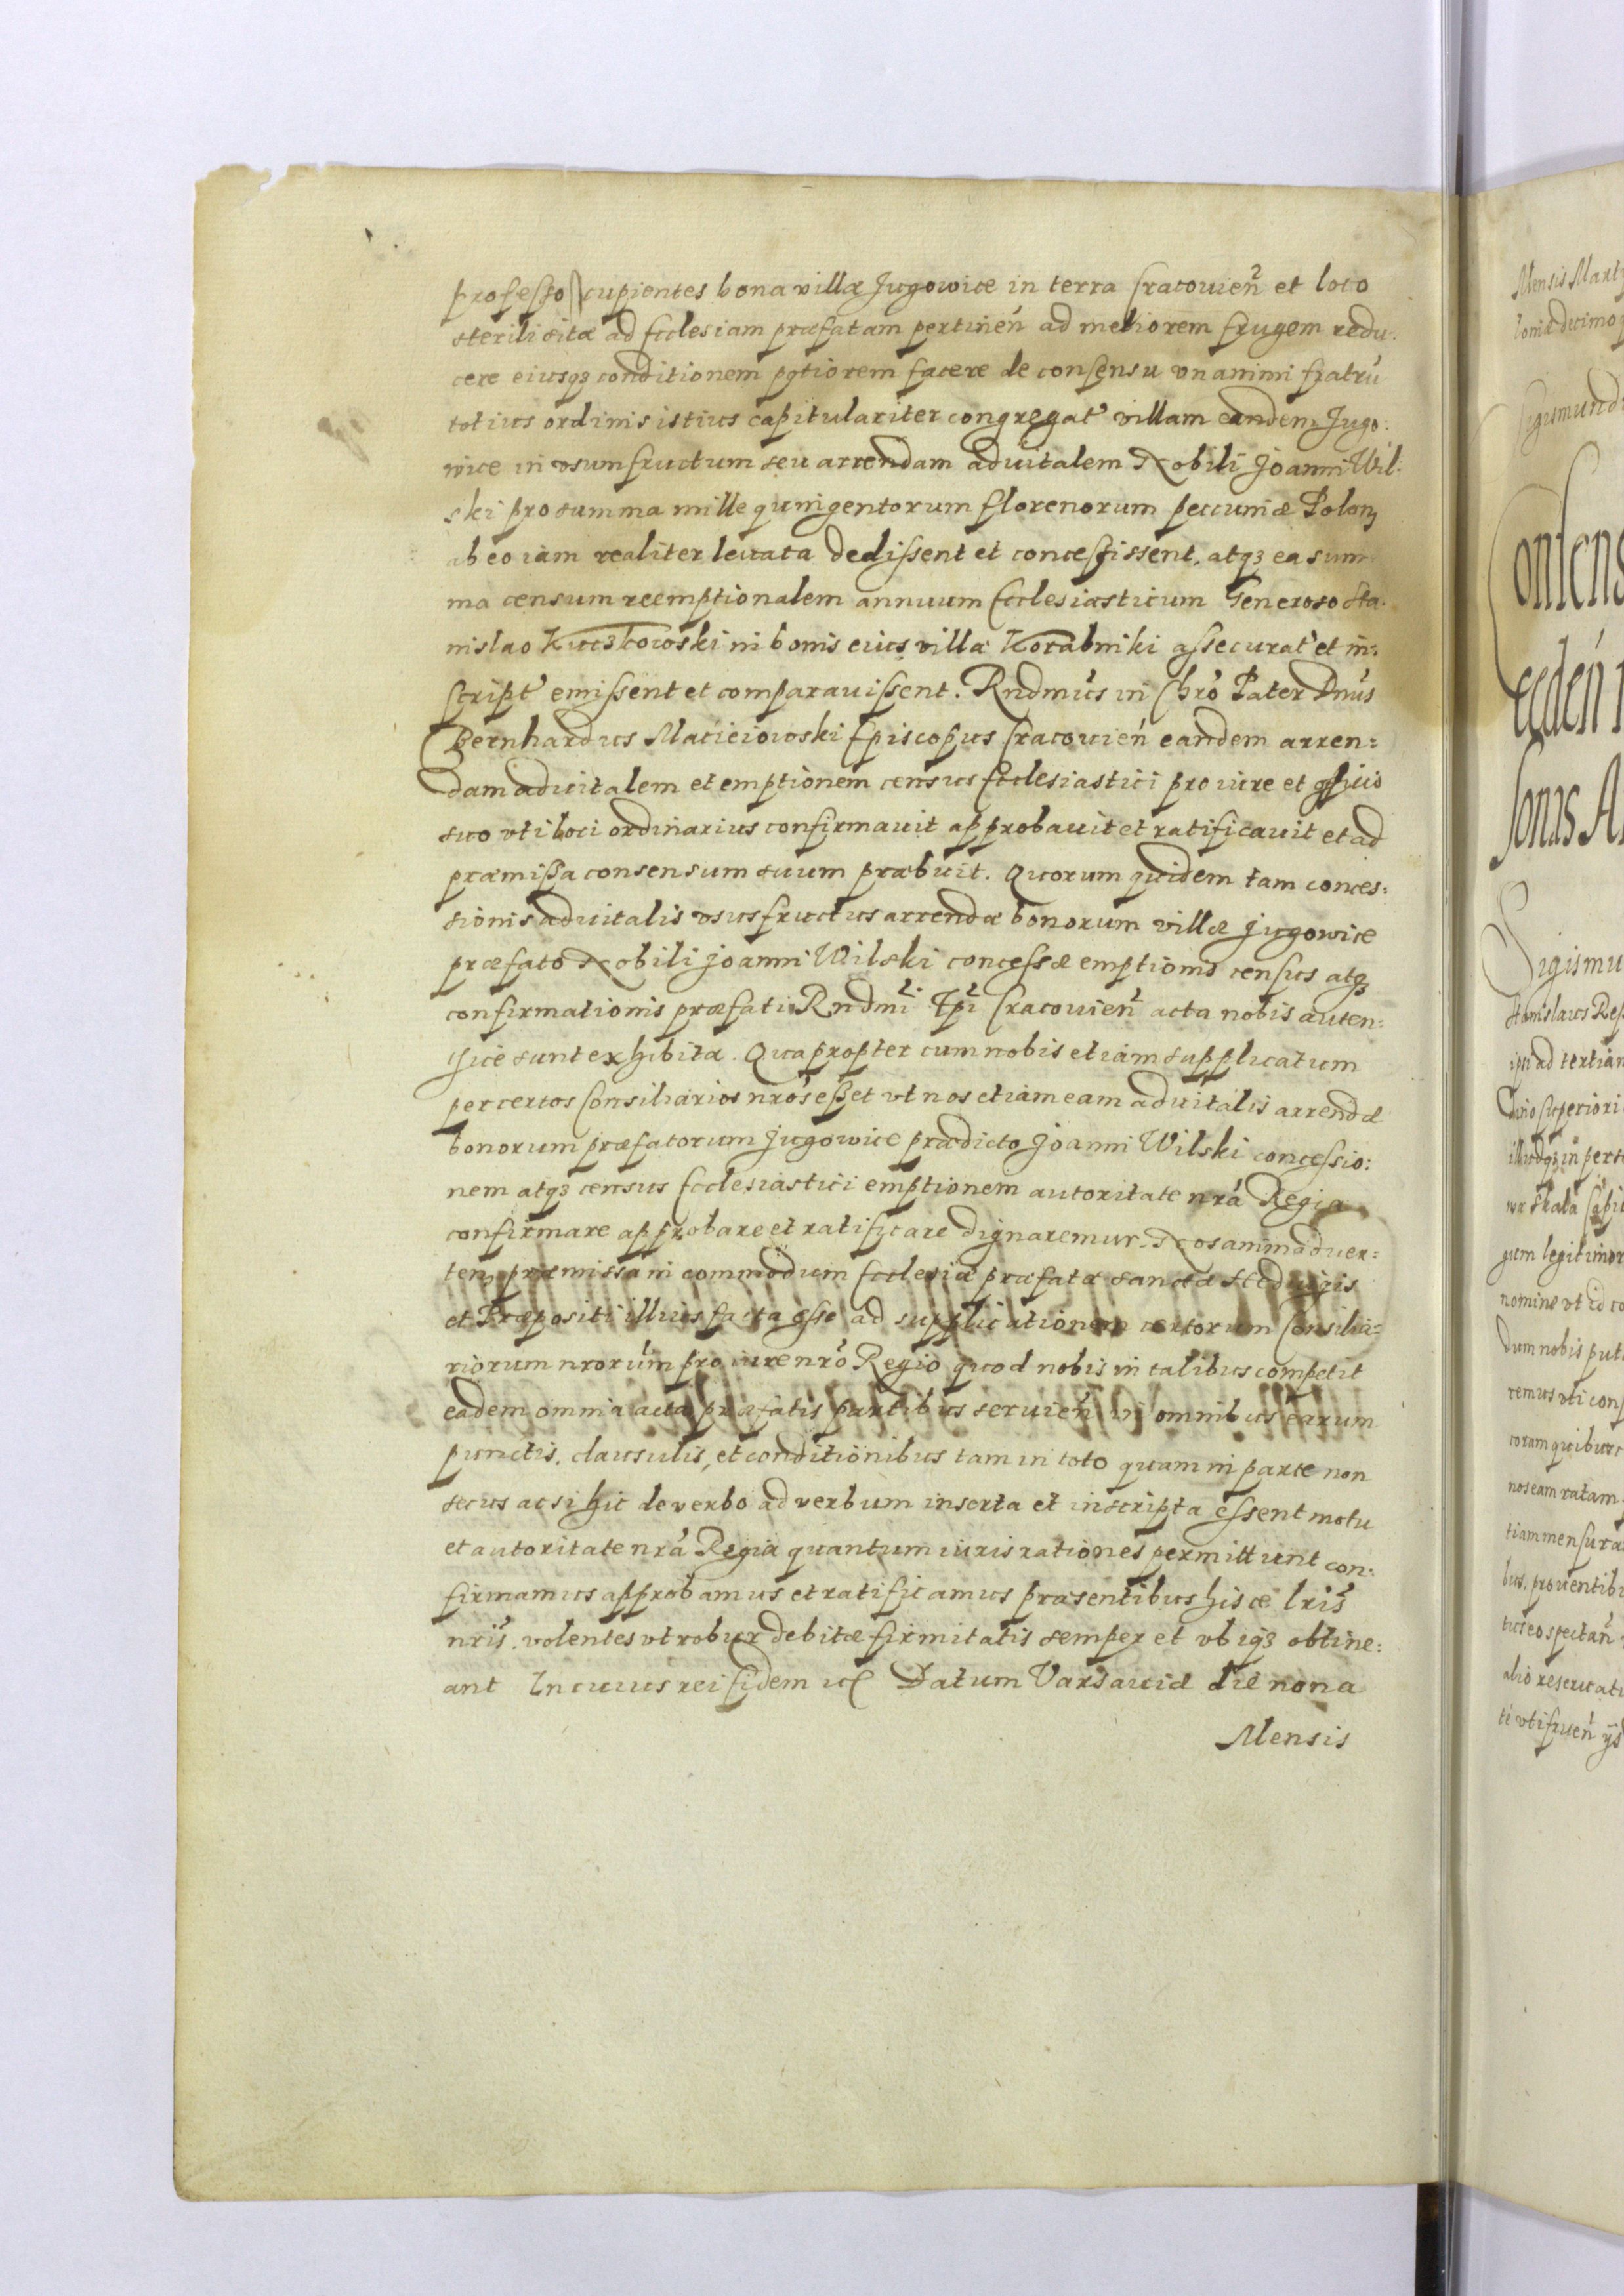 professo cupientes bona villæ Jugowice in terra Cracouien̄ et loco
sterili sitæ ad Ecclesiam præfatam pertineń ad meliorem frugem redu-
cere eiusqȝ conditionem potiorem facere de consensu vnanimi fratrū
totius ordinis istius capitulariter congregat' villam eandem Jugo:
wice in vsumfructum seu arrendam aduitalem Nobili Joanni Wil:
ski pro summa mille quingentorum florenorum peccuniæ Polonȝ
ab eo iam realiter leuata dedissent et concessissent, atqȝ ea sum
ma censum reemptionalem annuum Ecclesiasticum Generoso Sta-
nislao in bonis eius villa Korabniki assecurat' et in:
script' emissent et comparauissent. Rndmús in Chrō Pater Dnús
Bernhardus Macieiowski Episcopus Cracouień eandem arren:
dam aduitalem et emptionem census Ecclesiastici pro iure et officio
suo vti loci ordinarius confirmauit approbauit et ratificauit et ad
præmissa consensum suum præbuit. Quorum quidem tam conces:
sionis aduitalis vsusfructus arrendæ bonorum villæ Jugowice
præfato Nobili Joanni Wilski concessæ emptionis census atqȝ
confirmationis præfati Rndmi Epi Cracouień acta nobis auten:
tice sunt exhibita. Quapropter cum nobis etiam supplicatum
per certos Consiliarios nrós esset vt nos etiam eam aduitalis arrendæ
bonorum præfatorum Jugowice prædicto Joanni Wilski concessio:
nem atqȝ census Ecclesiastici emptionem autoritate nrá Regia
confirmare approbare et ratificare dignaremur. Nos animaduer:
tenȝ præmissa in commodum Ecclesiæ præfatæ sanctæ Heduigis
et Præpositi illius facta esse ad supplicationem certorum Consilia:
riorum nrorúm pro iure nró Regio quod nobis in talibus competit
eadem omnia acta præfatis partibus seruień in omnibus earum
punctis, clausulis, et conditionibus tam in toto quam in parte non
secus ac si hic de verbo ad verbum inserta et inscripta essent motu
et autoritate nrá Regia quantum iuris rationes permittunt con:
firmamus approbamus et ratificamus præsentibus hisce lrís
nrís. volentes vt robur debitæ firmitatis semper et vbiqȝ obtine:
ant In cuius rei fidem etc Datum Varsauiæ die nona
Mensis